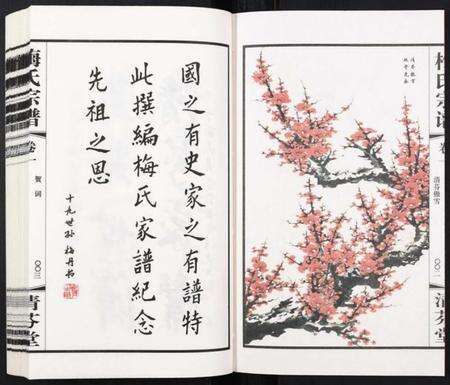 梅氏宗譜
卷一
清芬傲雪
〇〇二
清芬堂
國之有史家之有譜特
此撰編梅氏家譜紀念
先祖之恩
十九世孫 梅丹
梅氏宗譜
卷一
賀詞
〇〇三
清芬堂